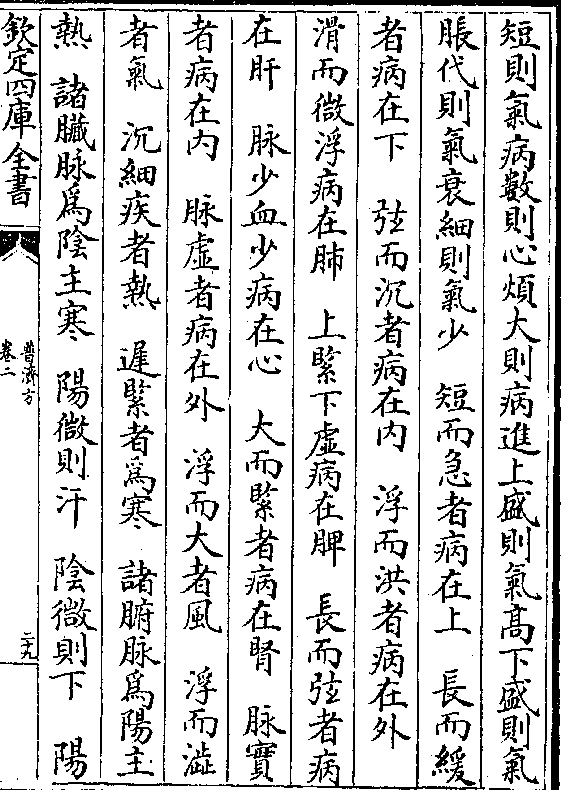 短則氣病數則心煩大則病進上盛則氣髙下盛則氣
脹代則氣衰細則氣少 短而急者病在上 長而緩
者病在下 弦而沉者病在内 浮而洪者病在外
滑而微浮病在肺 上緊下虛病在脾 長而弦者病
在肝 脉少血少病在心 大而緊者病在腎 脉實
者病在内 脉虛者病在外 浮而大者風 浮而澁
者氣 沉細疾者熱 遲緊者為寒 諸腑脉為陽主
熱 諸臟脉為陰主寒 陽微則汗 陰微則下 陽
欽定四庫全書
普濟方
卷二
二九